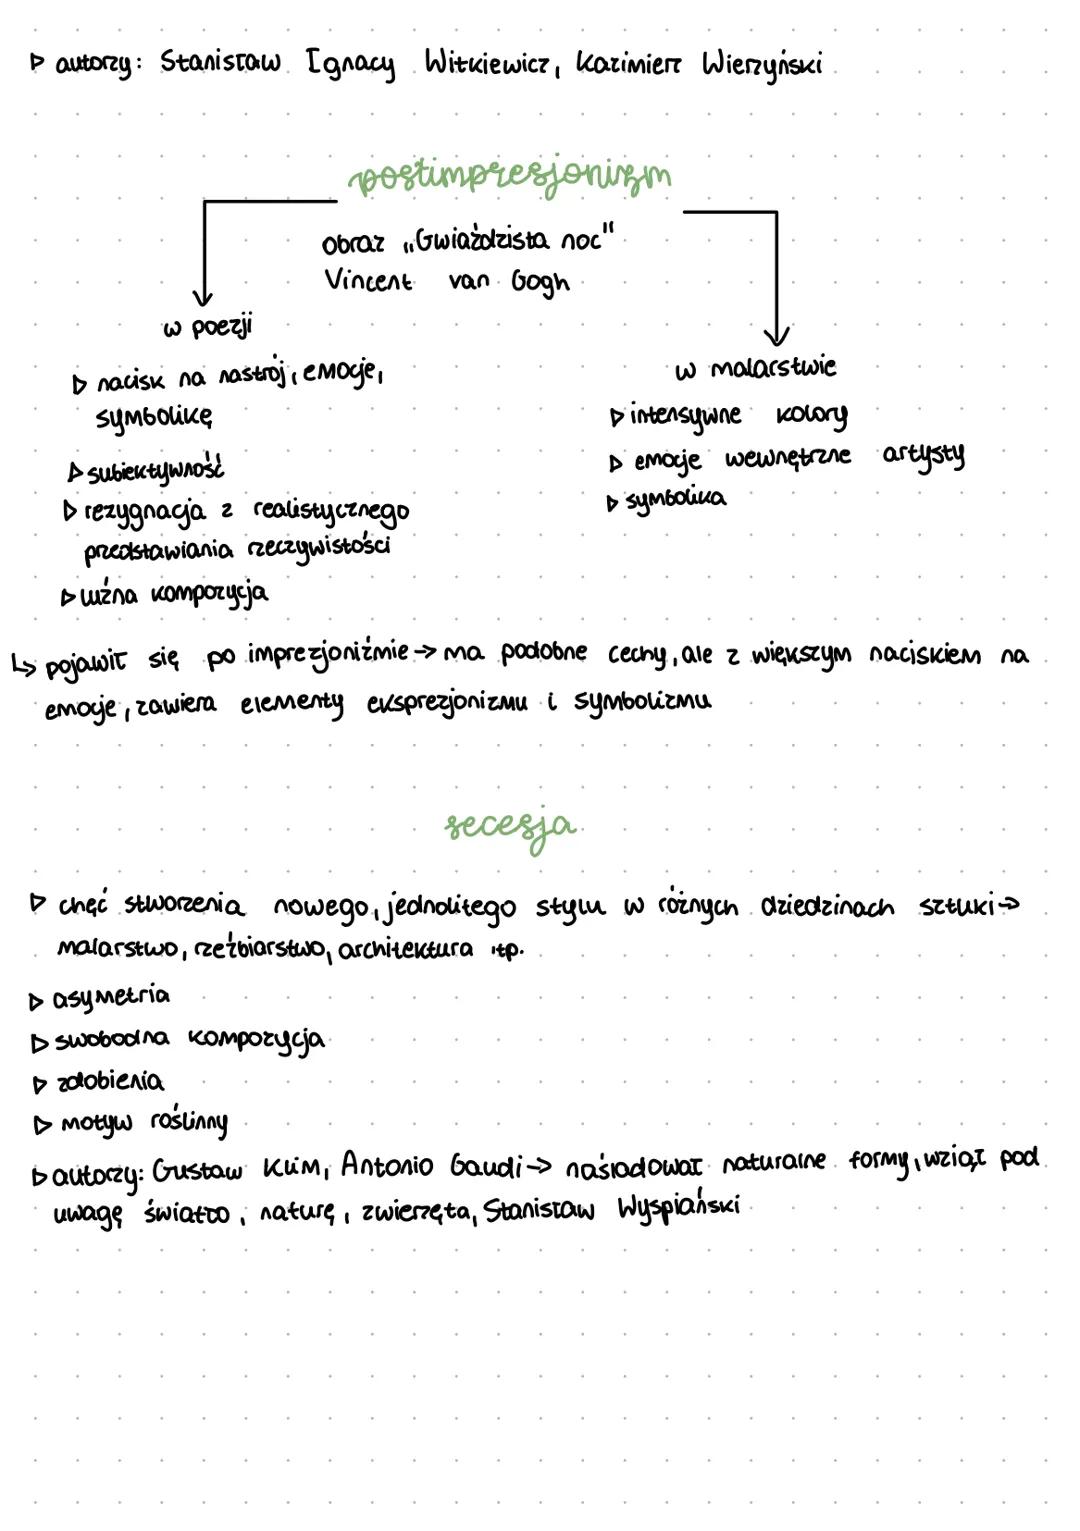 ▷ autorzy: Stanisław Ignacy Witkiewicz, Kazimierz Wierzyński
postimpresjonizm
obraz „Gwiaździsta noc"
Vincent van Gogh
w poezji
▷ nacisk na nastrój, emocje,
symbolikę
▷ subiektywność
▷ rezygnacja z realistycznego
przedstawiania rzeczywistości
▷ luźna kompozycja
w malarstwie
▷ intensywne kolory
▷ emocje wewnętrzne artysty
▷ symbolika
↳ pojawił się po imprezjoniźmie → ma podobne cechy, ale z większym naciskiem na
emocje, zawiera elementy eksprezjonizmu i symbolizmu
secesja
▷ chęć stworzenia nowego, jednolitego stylu w różnych dziedzinach sztuki →
malarstwo, rzeźbiarstwo, architektura itp.
▷ asymetria
▷ swobodna kompozycja
▷ zdobienia
▷ motyw roślinny
▷ autorzy: Gustaw Klim, Antonio Gaudi → naśladował naturalne formy, wziął pod
uwagę światło, naturę, zwierzęta, Stanisław Wyspiański